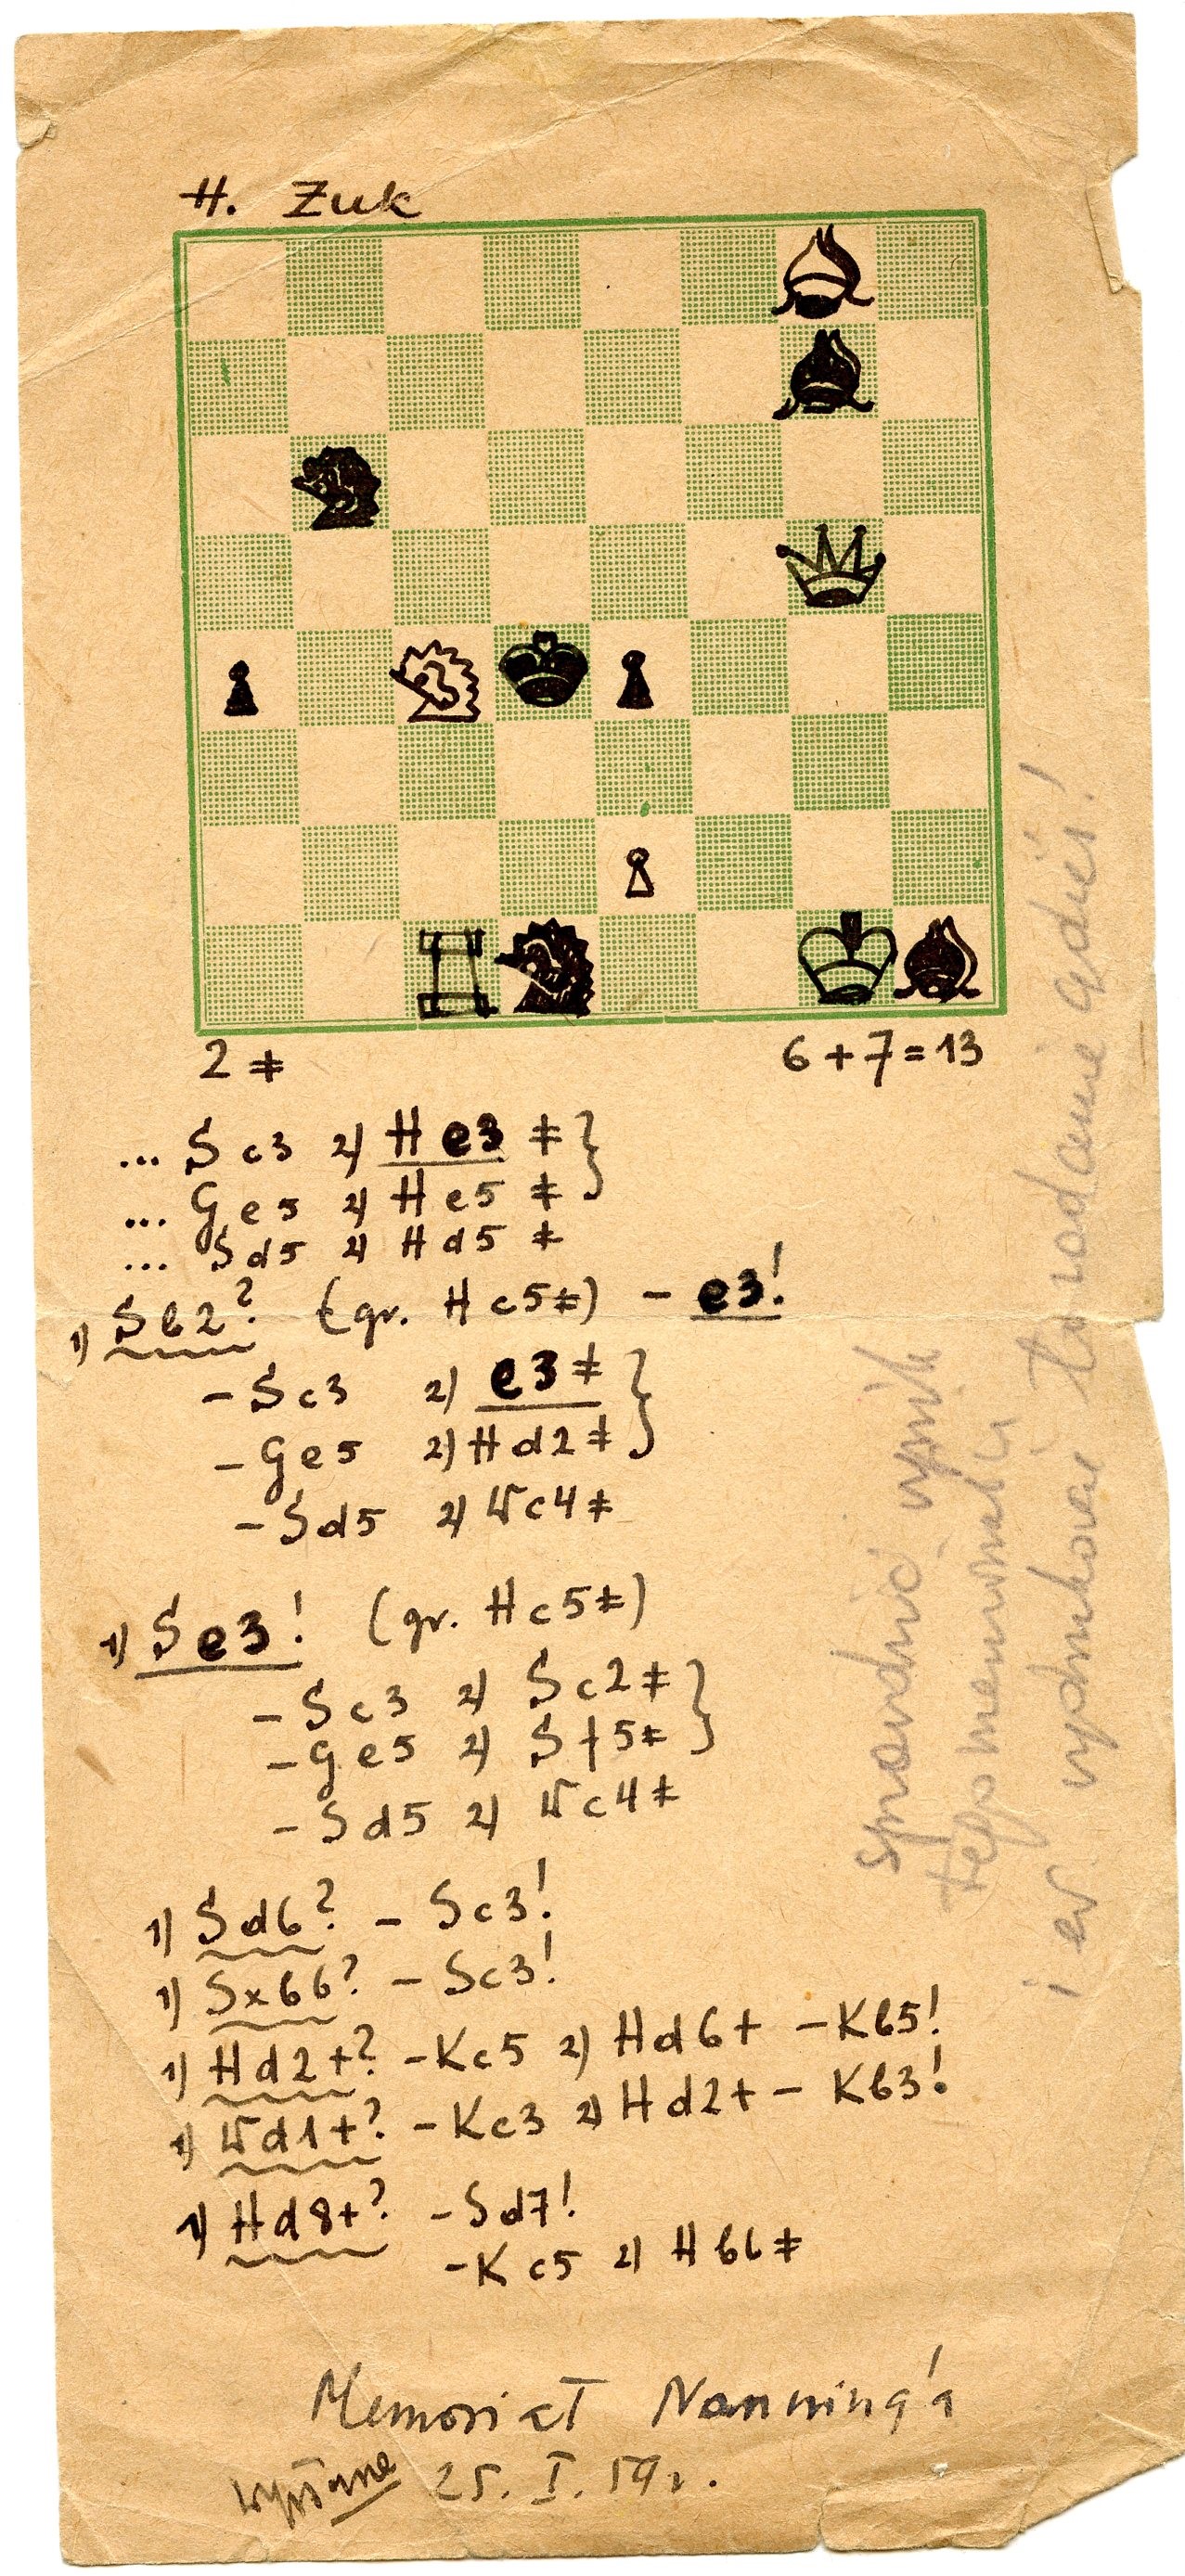 H. Zuk
2 ‡ 6 + 7 = 13
... Sc3 2) He3 ‡ }
... Ge5 2) He5 ‡
... Sd5 2) Hd5 ‡
1) Sb2? (gr. Hc5‡) - e3!
- Sc3 2) e3‡ }
- Ge5 2) Hd2‡
- Sd5 2) Wc4‡
1) Se3! (gr. Hc5‡)
- Sc3 2) Sc2‡ }
- Ge5 2) Sf5‡
- Sd5 2) Wc4‡
1) Sd6? - Sc3!
1) Sxb6? - Sc3!
1) Hd2+? - Kc5 2) Hd6+ - Kb5!
1) Wd1+? - Kc3 2) Hd2+ - Kb3!
1) Hd8+? - Sd7!
- Kc5 2) Hb6‡
Memoriał Nanning'a
wysłane 25. I. 59r.
sprawdzić wynik
tego memoriału
i ew. wydrukować to zadanie gdzieś!